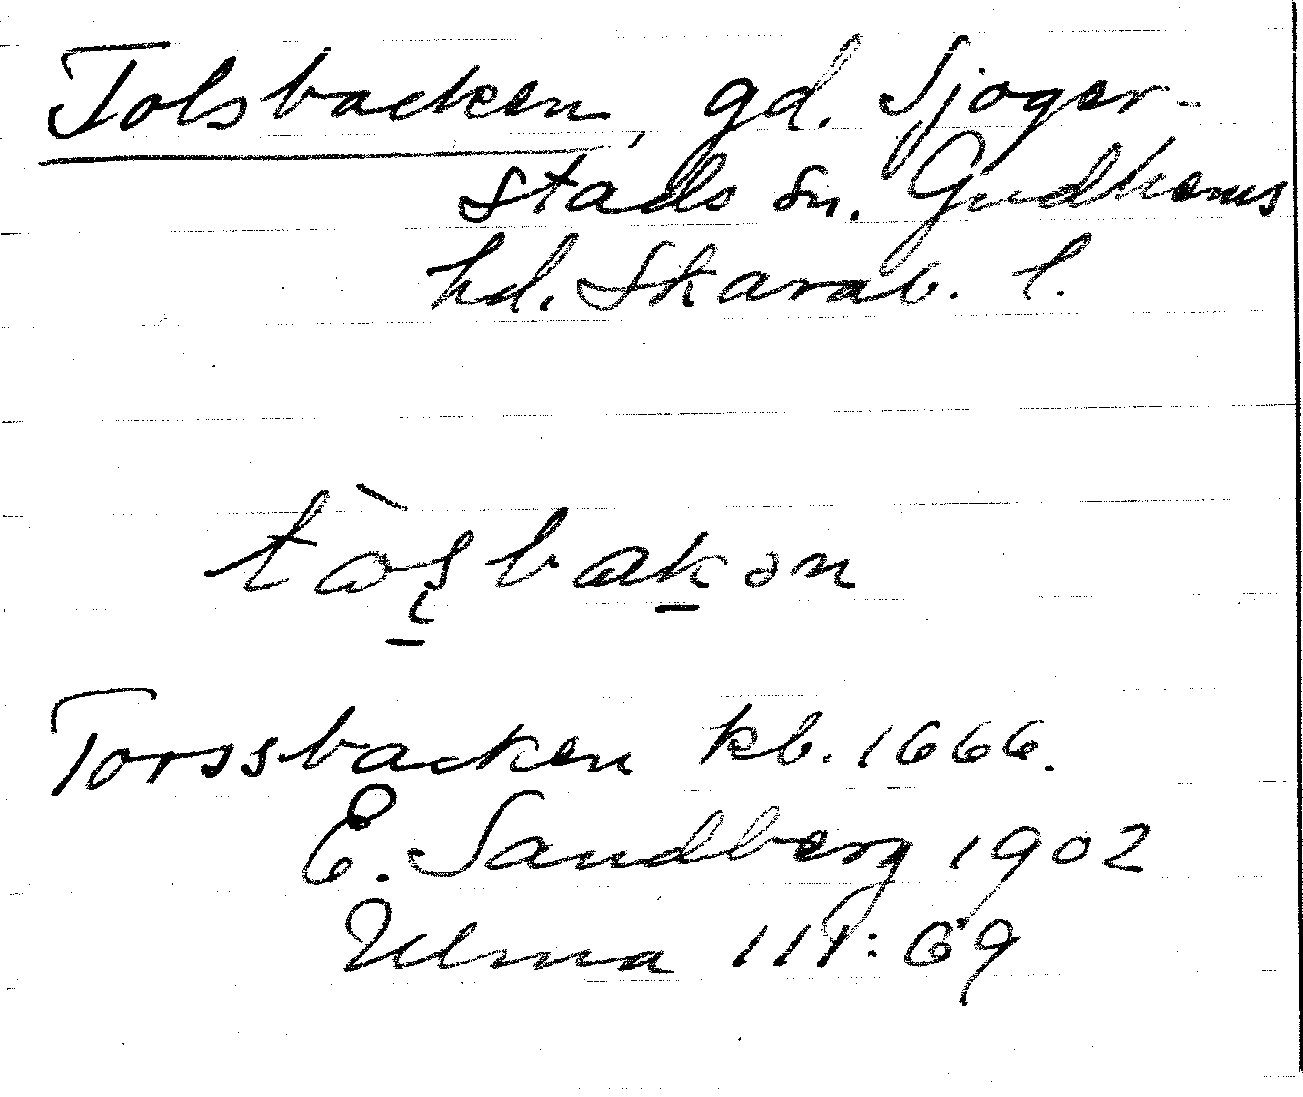 Tolsbacken, gd. Sjoger-
stads sn. Gudhems
hd. Skarab. l.
tòʂbakən
Torssbacken kb. 1666.
E. Sandberg 1902
Ulma 111:69